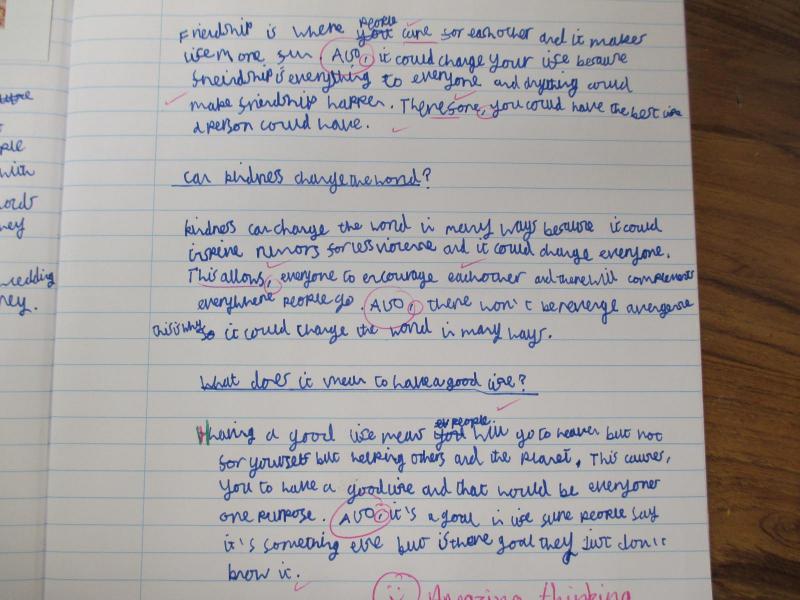 Friendship is where people care for eachother and it makes
life more fun. Also, it could change your life because
freindship is everything to everyone and anything could
make friendship happen. Therefore, you could have the best life
a person could have.
can kindness change the world?
kindness can change the world in many ways because it could
inspire rumors for less violence and it could change everyone.
This allows, everyone to encourage eachother and there will complements
everywhere people go. Also, there won't be revenge
this is why it could change the world in many ways.
What does it mean to have a good life?
Having a good life mean people will go to heaven but not
for yourself but helping others and the planet. This causes,
you to have a good life and that would be everyones
one purpose. Also, it's a goal in life some people say
it's something else but is there goal they just don't
know it.
Amazing thinking
ple
with
words
ney
wedding
ney.